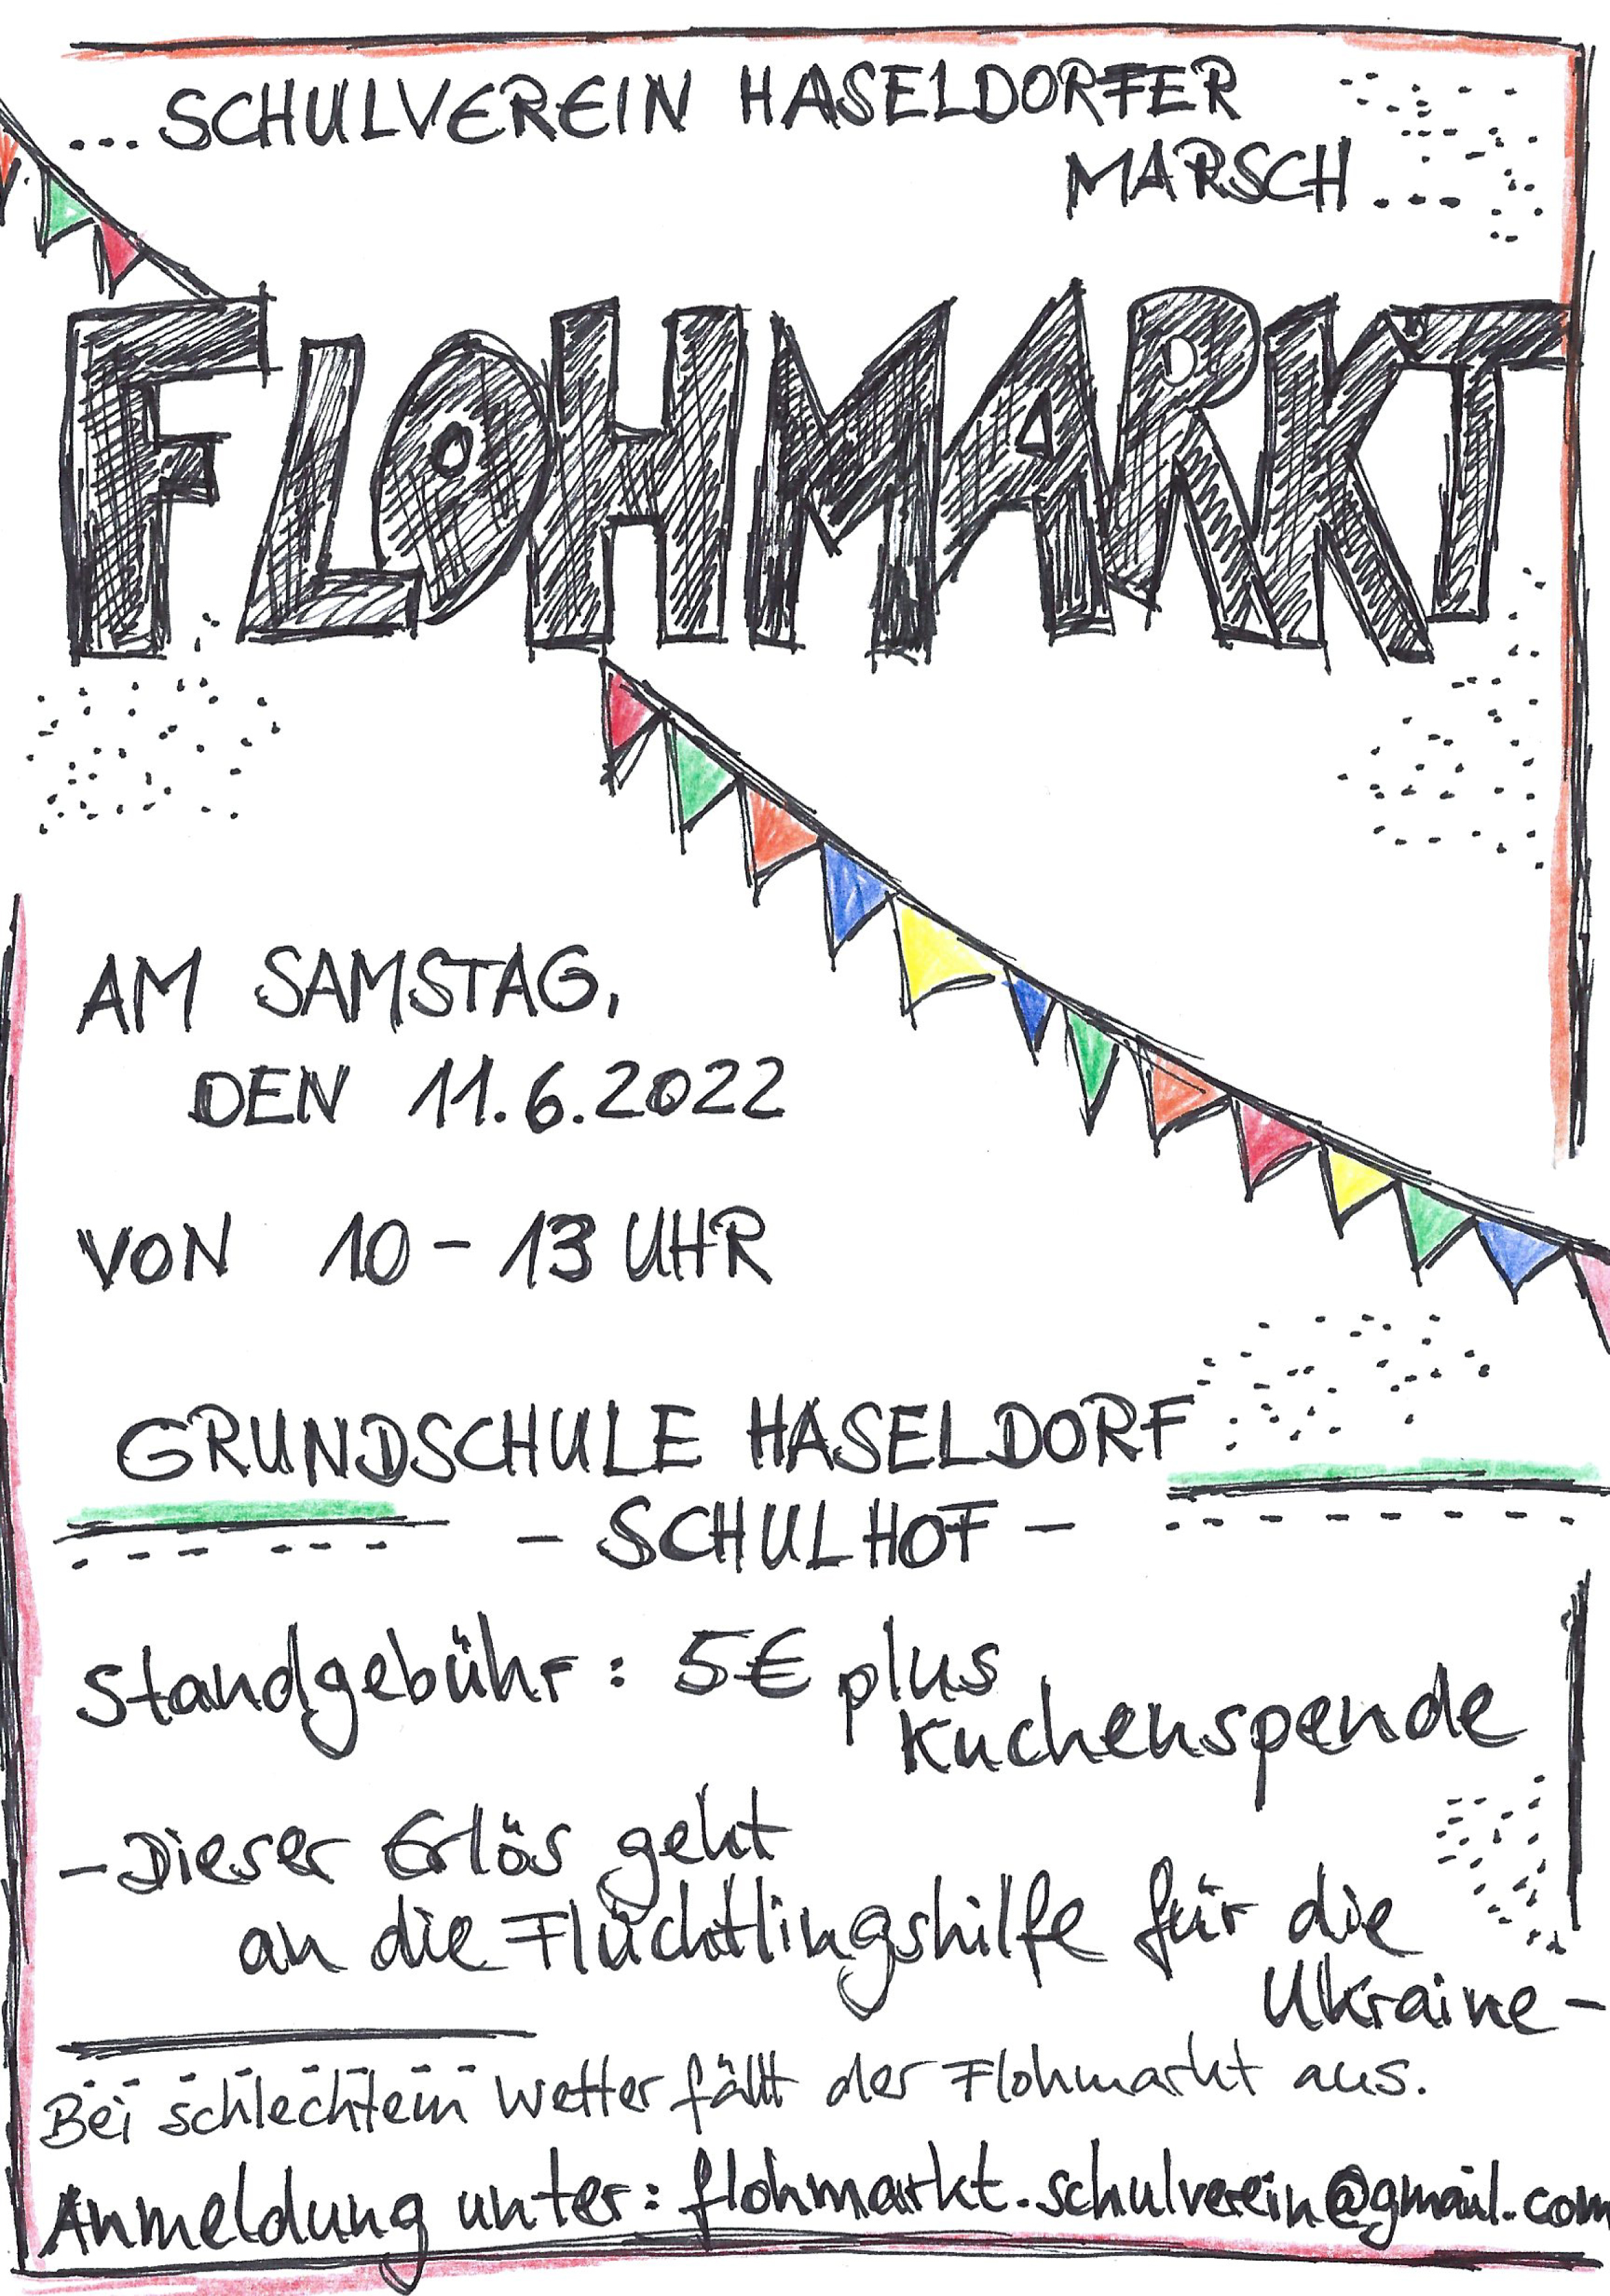 ... SCHULVEREIN HASELDORFER
MARSCH...
FLOHMARKT
AM SAMSTAG,
DEN 11.6.2022
VON 10 - 13 UHR
GRUNDSCHULE HASELDORF
- SCHULHOF -
Standgebühr: 5€ plus
Kuchenspende
- Dieser Erlös geht
an die Flüchtlingshilfe für die
Ukraine -
Bei schlechtem Wetter fällt der Flohmarkt aus.
Anmeldung unter: flohmarkt.schulverein@gmail.com